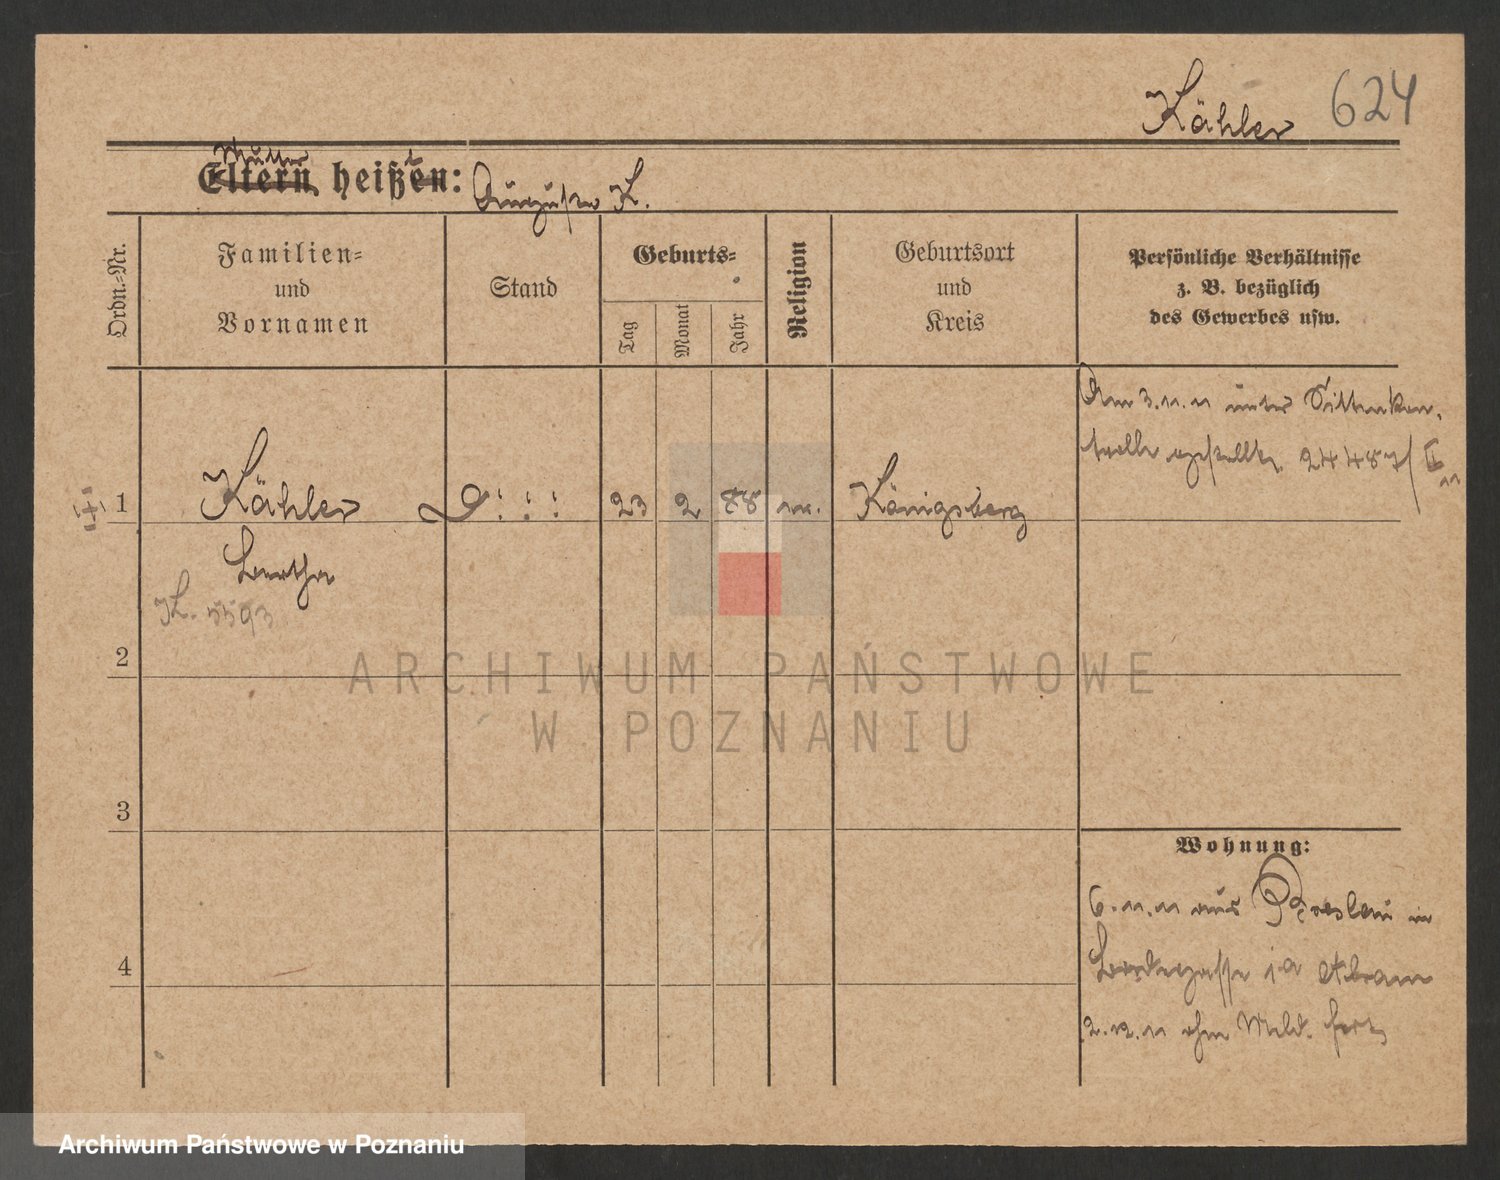 Kähler 624
Mutter
Eltern heißen: Auguste K.
Ordn.-Nr.
Familien-
und
Vornamen
Stand
Geburts-
Tag
Monat
Jahr
Religion
Geburtsort
und
Kreis
Persönliche Verhältnisse
z. B. bezüglich
des Gewerbes usw.
Am 3.11.11 unter Sittenkon-
trolle gestellt. 24487/
1 Kähler 23 2 88 Königsberg
Bertha
K. 5593
2
ARCHIWUM PAŃSTWOWE
W POZNANIU
3
4
Wohnung:
6.11.11 aus Breslau in
2.12.11 ohne Meld. fort
Archiwum Państwowe w Poznaniu